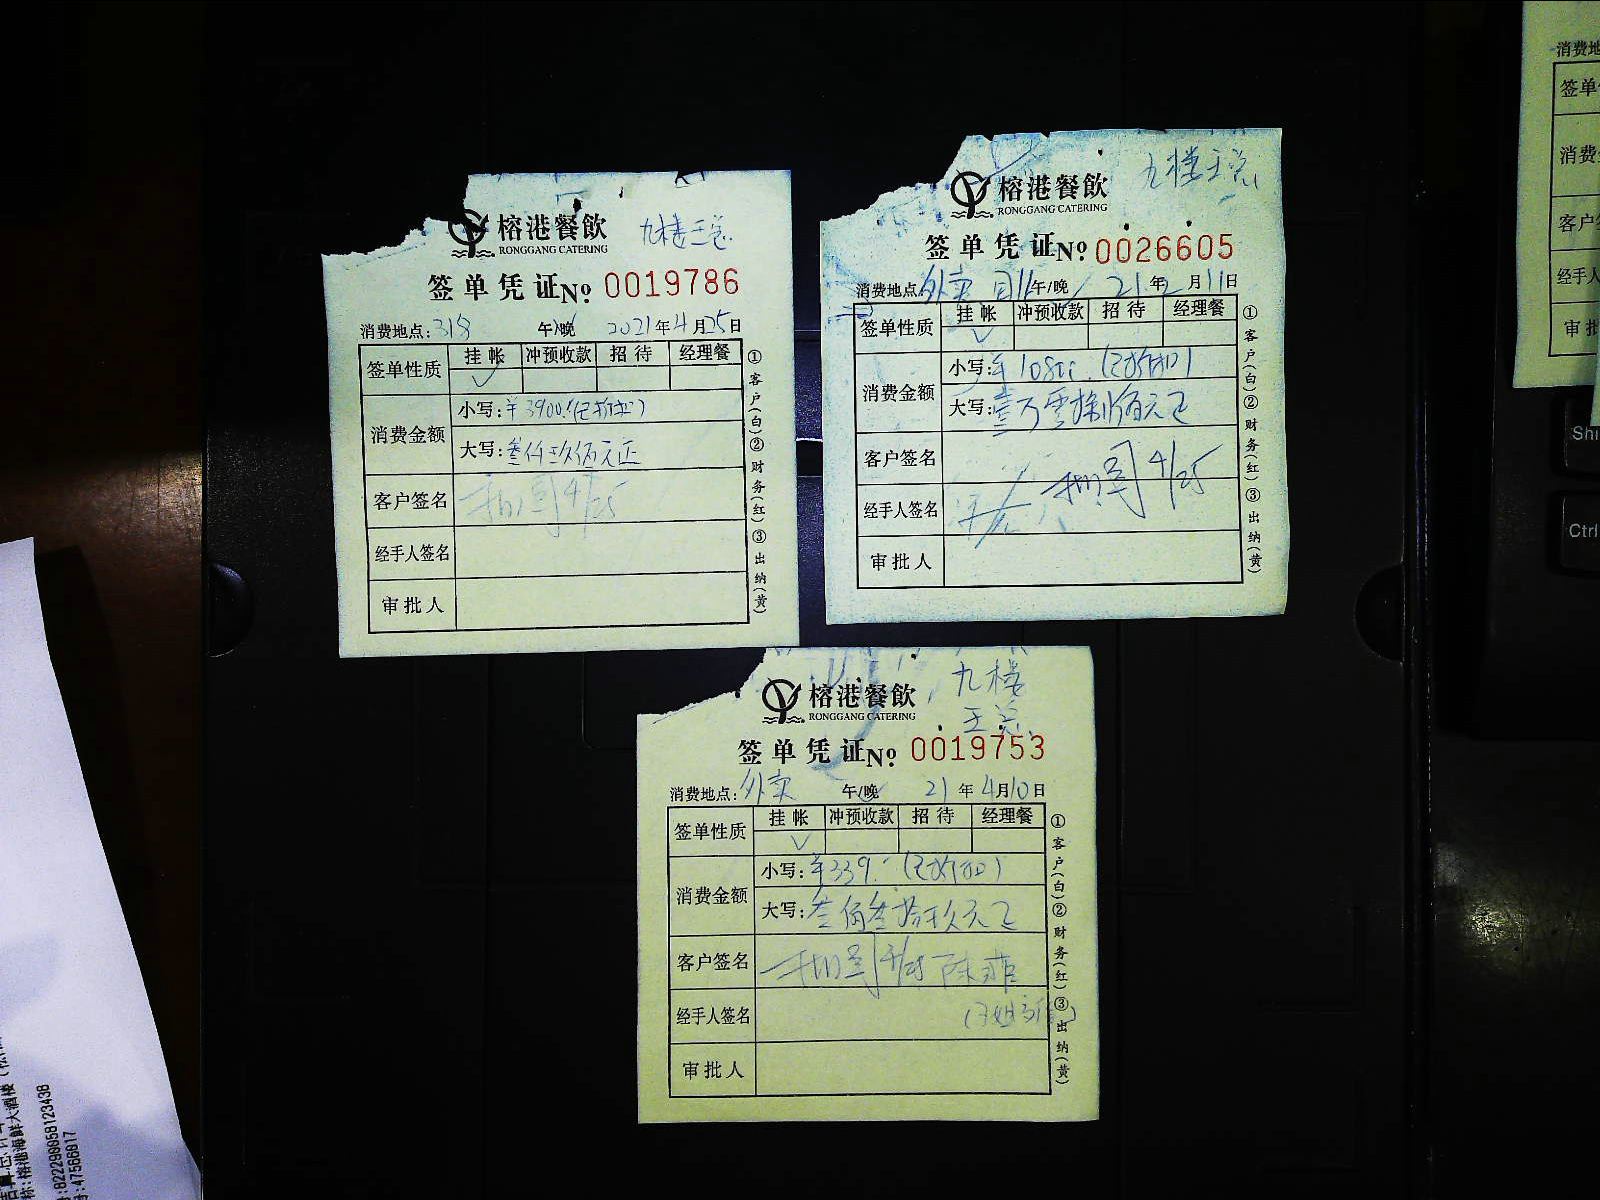 榕港餐飲 九楼王总
RONGGANG CATERING
签单凭证№ 0019786
消费地点:318 午/晚 2021年4月25日
签单性质 挂帐 冲预收款 招待 经理餐
✓
消费金额 小写:¥3900.(已折扣)
大写:叁仟玖佰元正
客户签名 4/25
经手人签名
审批人
①客户(白)②财务(红)③出纳(黄)
榕港餐飲 九楼王总
RONGGANG CATERING
签单凭证№ 0026605
消费地点:外卖 午/晚 21年2月11日
签单性质 挂帐 冲预收款 招待 经理餐
✓
消费金额 小写:¥ (已折扣)
大写:壹万零捌佰元正
客户签名 4/25
经手人签名
审批人
①客户(白)②财务(红)③出纳(黄)
榕港餐飲 九楼
RONGGANG CATERING 王总
签单凭证№ 0019753
消费地点:外卖 午/晚 21年4月10日
签单性质 挂帐 冲预收款 招待 经理餐
✓
消费金额 小写:¥339.(已折扣)
大写:叁佰叁拾玖元正
客户签名 4/25
经手人签名
审批人
①客户(白)②财务(红)③出纳(黄)
消费地
签单
消费
客户
经手人
审批
Shi
Ctrl
榕港海鲜大酒楼
:82229005812343B
:47566817